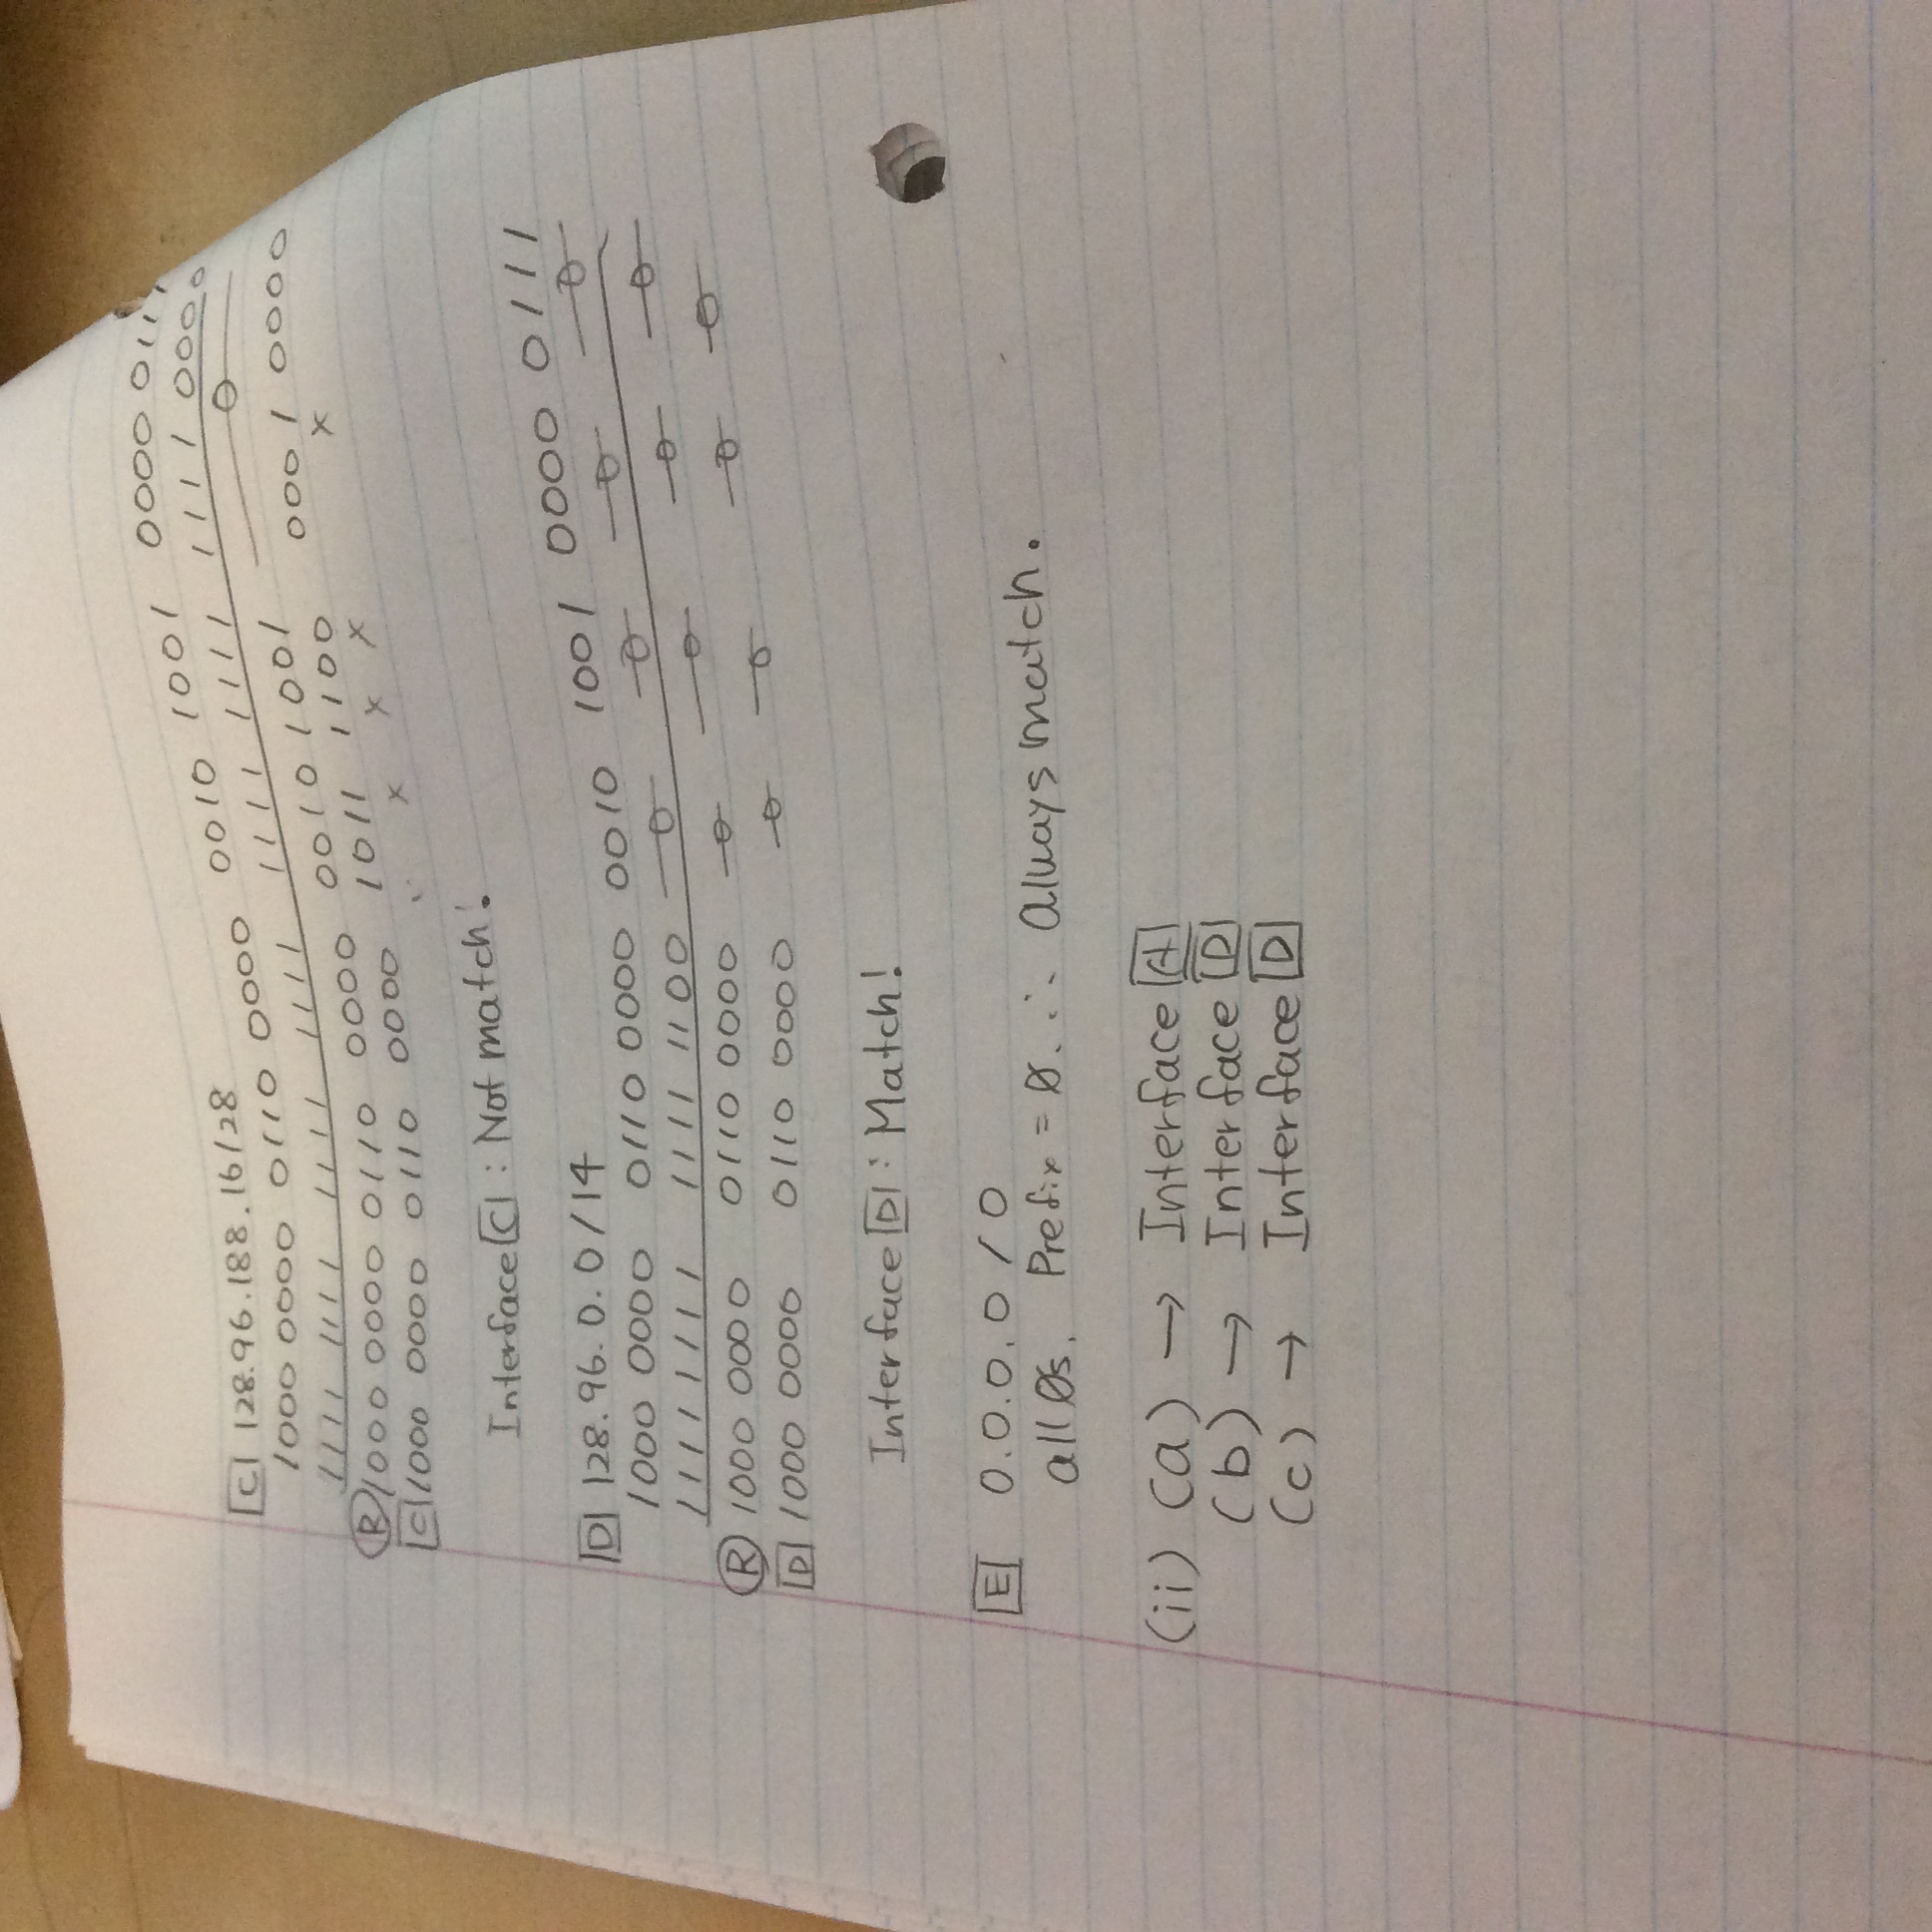 [C] 128.96.188.16/28
1000 0000 0110 0000 0010 1001 0000 0111
1111 1111 1111 1111 1111 1111 1111 0000
(R) 1000 0000 0110 0000 0010 1001 0
[C] 1000 0000 0110 0000 1011 1100 0001 0000
x x x x
Interface [C] : Not match!
[D] 128.96.0.0/14
1000 0000 0110 0000 0010 1001 0000 0111
1111 1111 1111 1100 0 0 0 0
(R) 1000 0000 0110 0000 0 0 0 0
[D] 1000 0000 0110 0000 0 0 0 0
Interface [D] : Match!
[E] 0.0.0.0 / 0
all Øs. Prefix = Ø. ∴ Always match.
(ii) (a) → Interface [A]
(b) → Interface [D]
(c) → Interface [D]